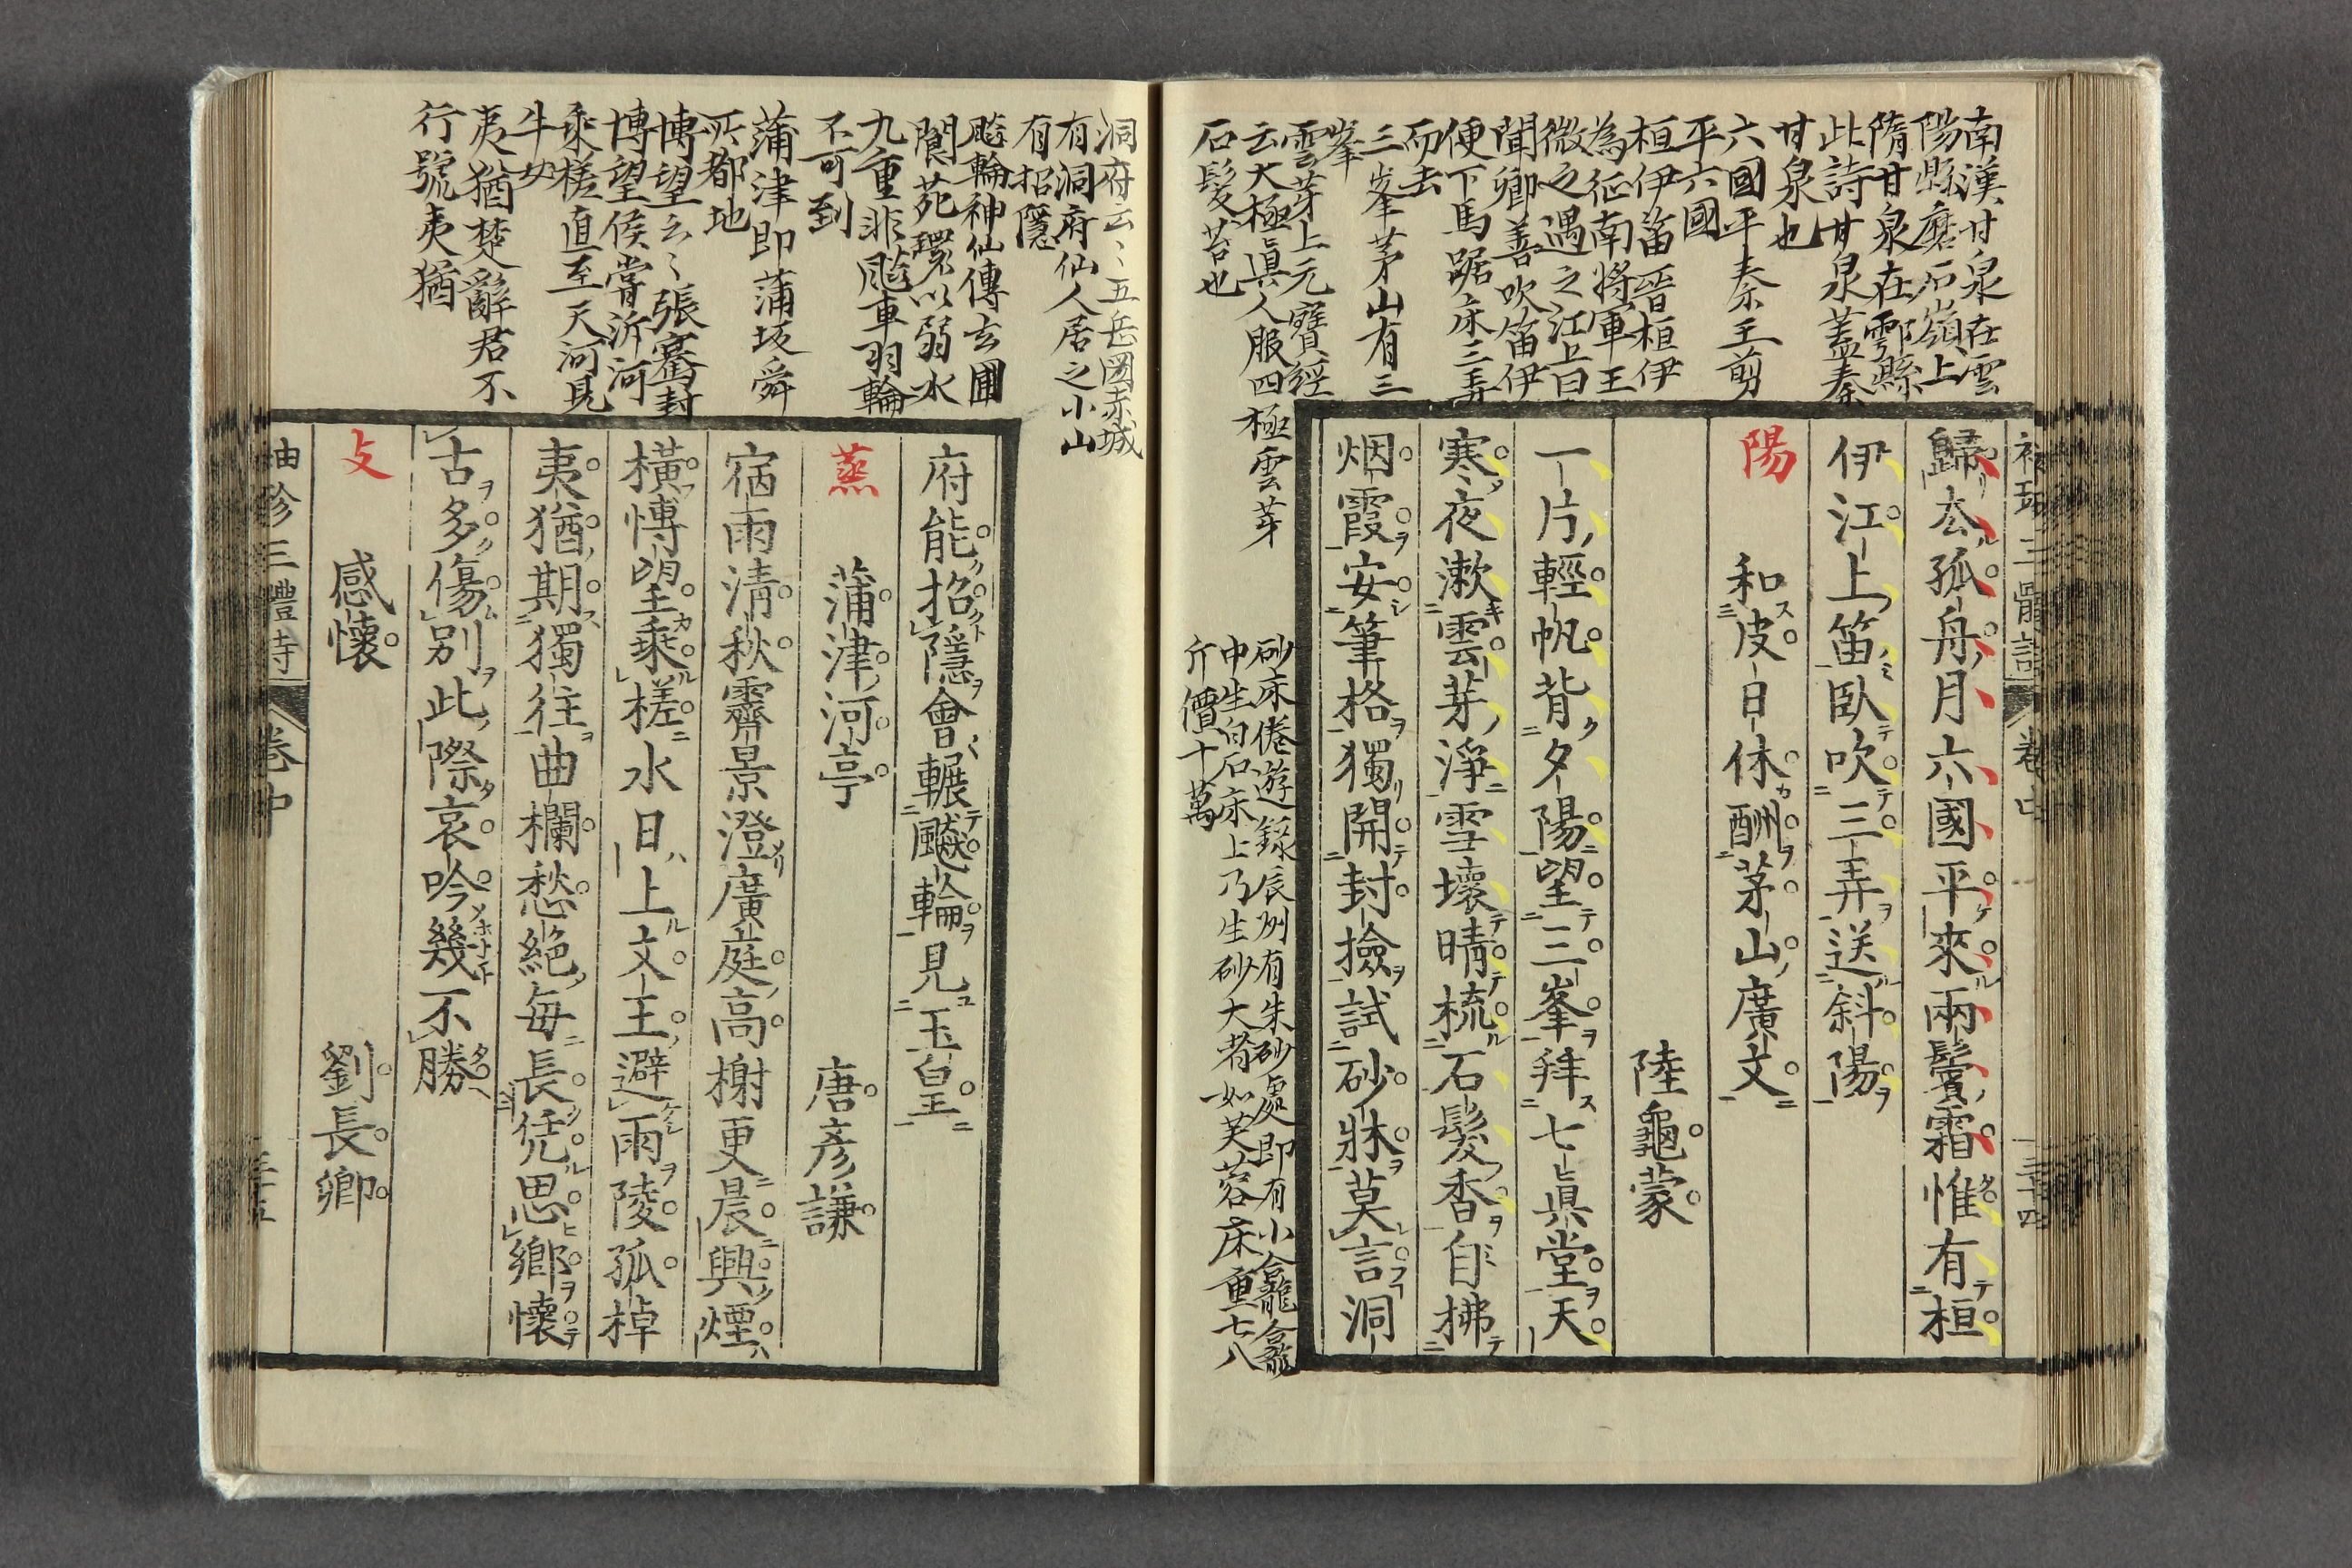 南漢甘泉在雲
陽縣磨石嶺上
隋甘泉在鄠縣
此詩甘泉蓋秦
甘泉也
六國平秦王剪
平六國
桓伊笛晉桓伊
為征南將軍王
微之遇之江上曰
聞卿善吹笛伊
便下馬踞床三弄
而去
三峯茅山有三
峯
雲芽上元寶經
云大極眞人服四極雲芽
石髮苔也
歸去孤舟月六國平來兩鬢霜惟有桓
伊江上笛臥吹三弄送斜陽
陽
和皮日休酬茅山廣文
陸龜蒙
一片輕帆背夕陽望三峯拜七眞堂天
寒夜漱雲芽淨雪壞晴梳石髮香自拂
烟霞安筆格獨開封撿試砂牀莫言洞
砂床倦遊錄辰州有朱砂處即有小龕龕
中生白石床上乃生砂大者如芙蓉床重七八
斤價十萬
卷中
三十四
洞府云〻五岳圖赤城
有洞府仙人居之小山
有招隱
飈輪神仙傳玄圃
閬苑環以弱水
九重非飈車羽輪
不可到
蒲津即蒲坂舜
所都地
博望云〻張騫封
博望侯嘗泝河
乘槎直至天河見
牛女
夷猶楚辭君不
行號夷猶
府能招隱會輾飈輪見玉皇
蒸
蒲津河亭
唐彦謙
宿雨清秋霽景澄廣庭高榭更晨興煙
橫博望乘槎水日上文王避雨陵孤棹
夷猶期獨往曲欄愁絕每長凭思鄉懷
古多傷別此際哀吟幾不勝
支
感懷
劉長卿
袖珍三體詩
卷中
三十五